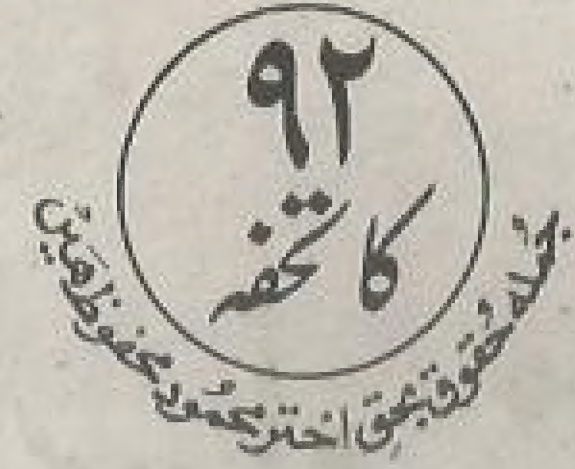 ۹۲
کا تحفہ
جملہ حقوق بحق اختر محمود محفوظ ھیں